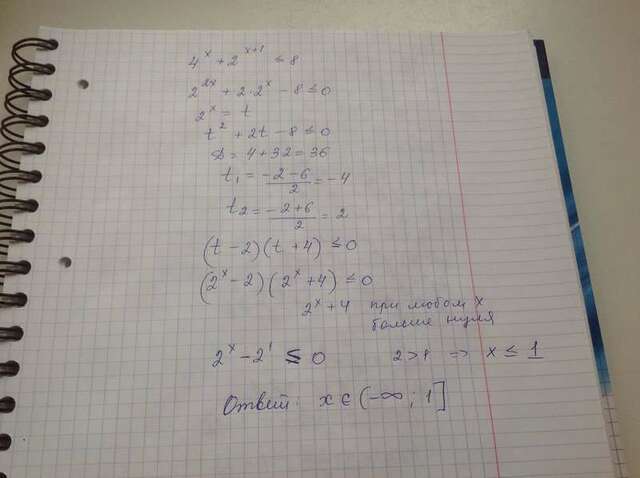 4^x + 2^{x+1} ≤ 8
2^{2x} + 2·2^x - 8 ≤ 0
2^x = t
t^2 + 2t - 8 ≤ 0
D = 4 + 32 = 36
t_1 = \frac{-2-6}{2} = -4
t_2 = \frac{-2+6}{2} = 2
(t - 2)(t + 4) ≤ 0
(2^x - 2)(2^x + 4) ≤ 0
2^x + 4 при любом x
больше нуля
2^x - 2^1 ≤ 0 2 > 1 => x ≤ 1
Ответ: x ∈ (-∞; 1]